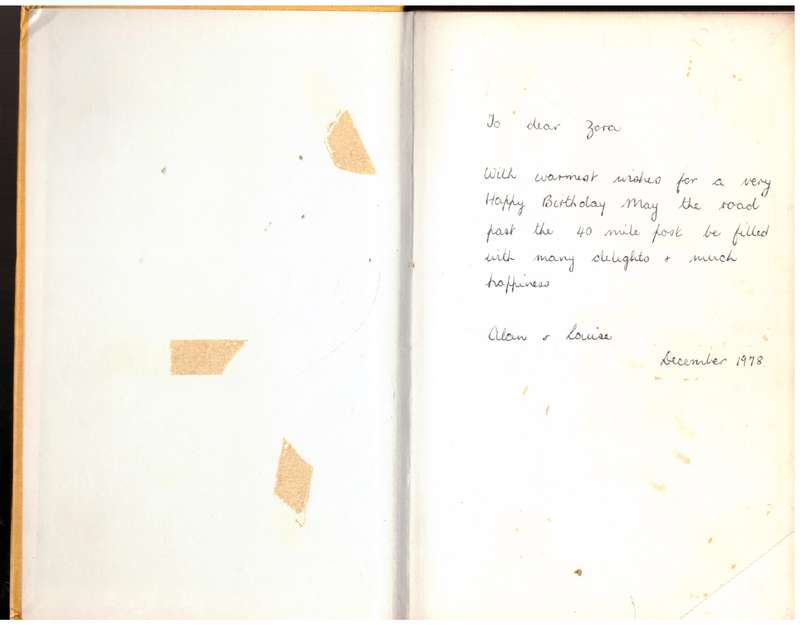 To dear Zora
With warmest wishes for a very
Happy Birthday May the road
past the 40 mile post be filled
with many delights + much
happiness
Alan + Louise
December 1978